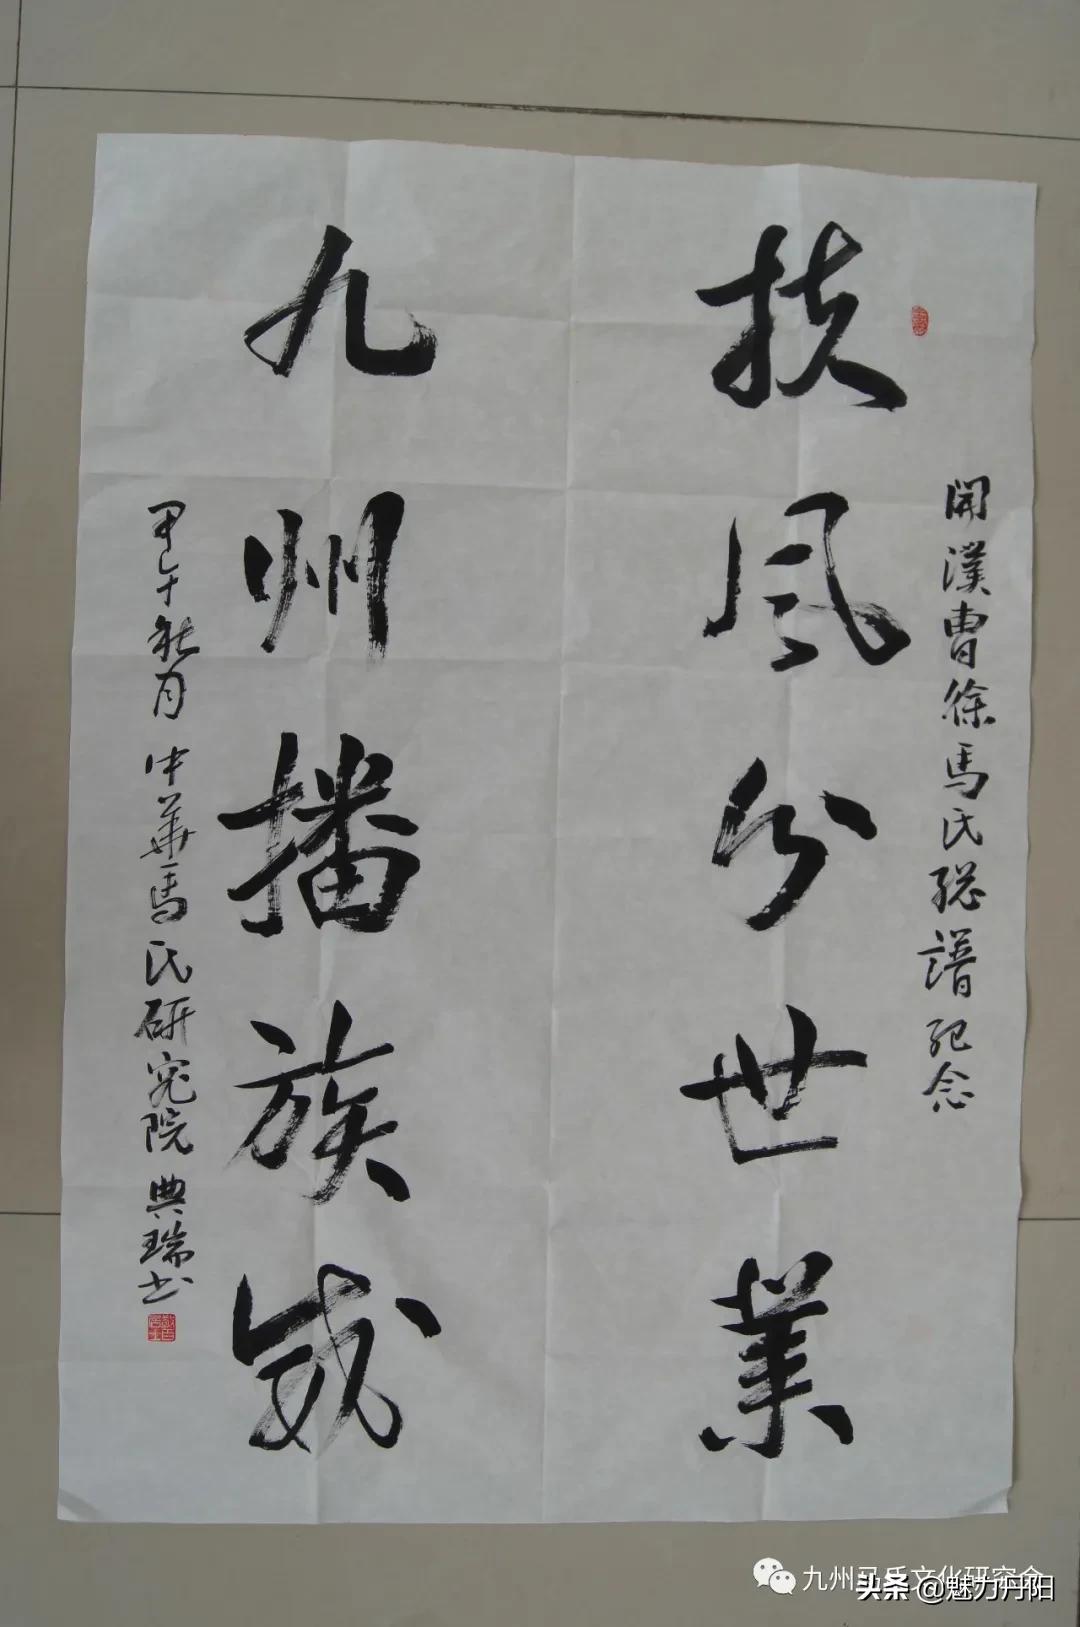 開漢曹徐馬氏總譜紀念
扶風分世業
九州播族威
甲午秋月 中華馬氏研究院 典瑞书
九州马氏文化研究会
头条 @魅力丹阳